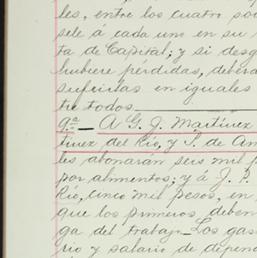 les, entre los cuatro soc
sele á cada uno en su
ta de Capital; y si desg
hubiere pérdidas, deberá
suplirlas en iguales
tre todos.
9ª— A G. J. Martínez
tinez del Rio, y S. de An
les abonarán seis mil p
por alimentos; y á J. P.
Rio, cinco mil pesos, en
que los primeros, deben
ga del trabajo— Los gas
rio y salario de depend